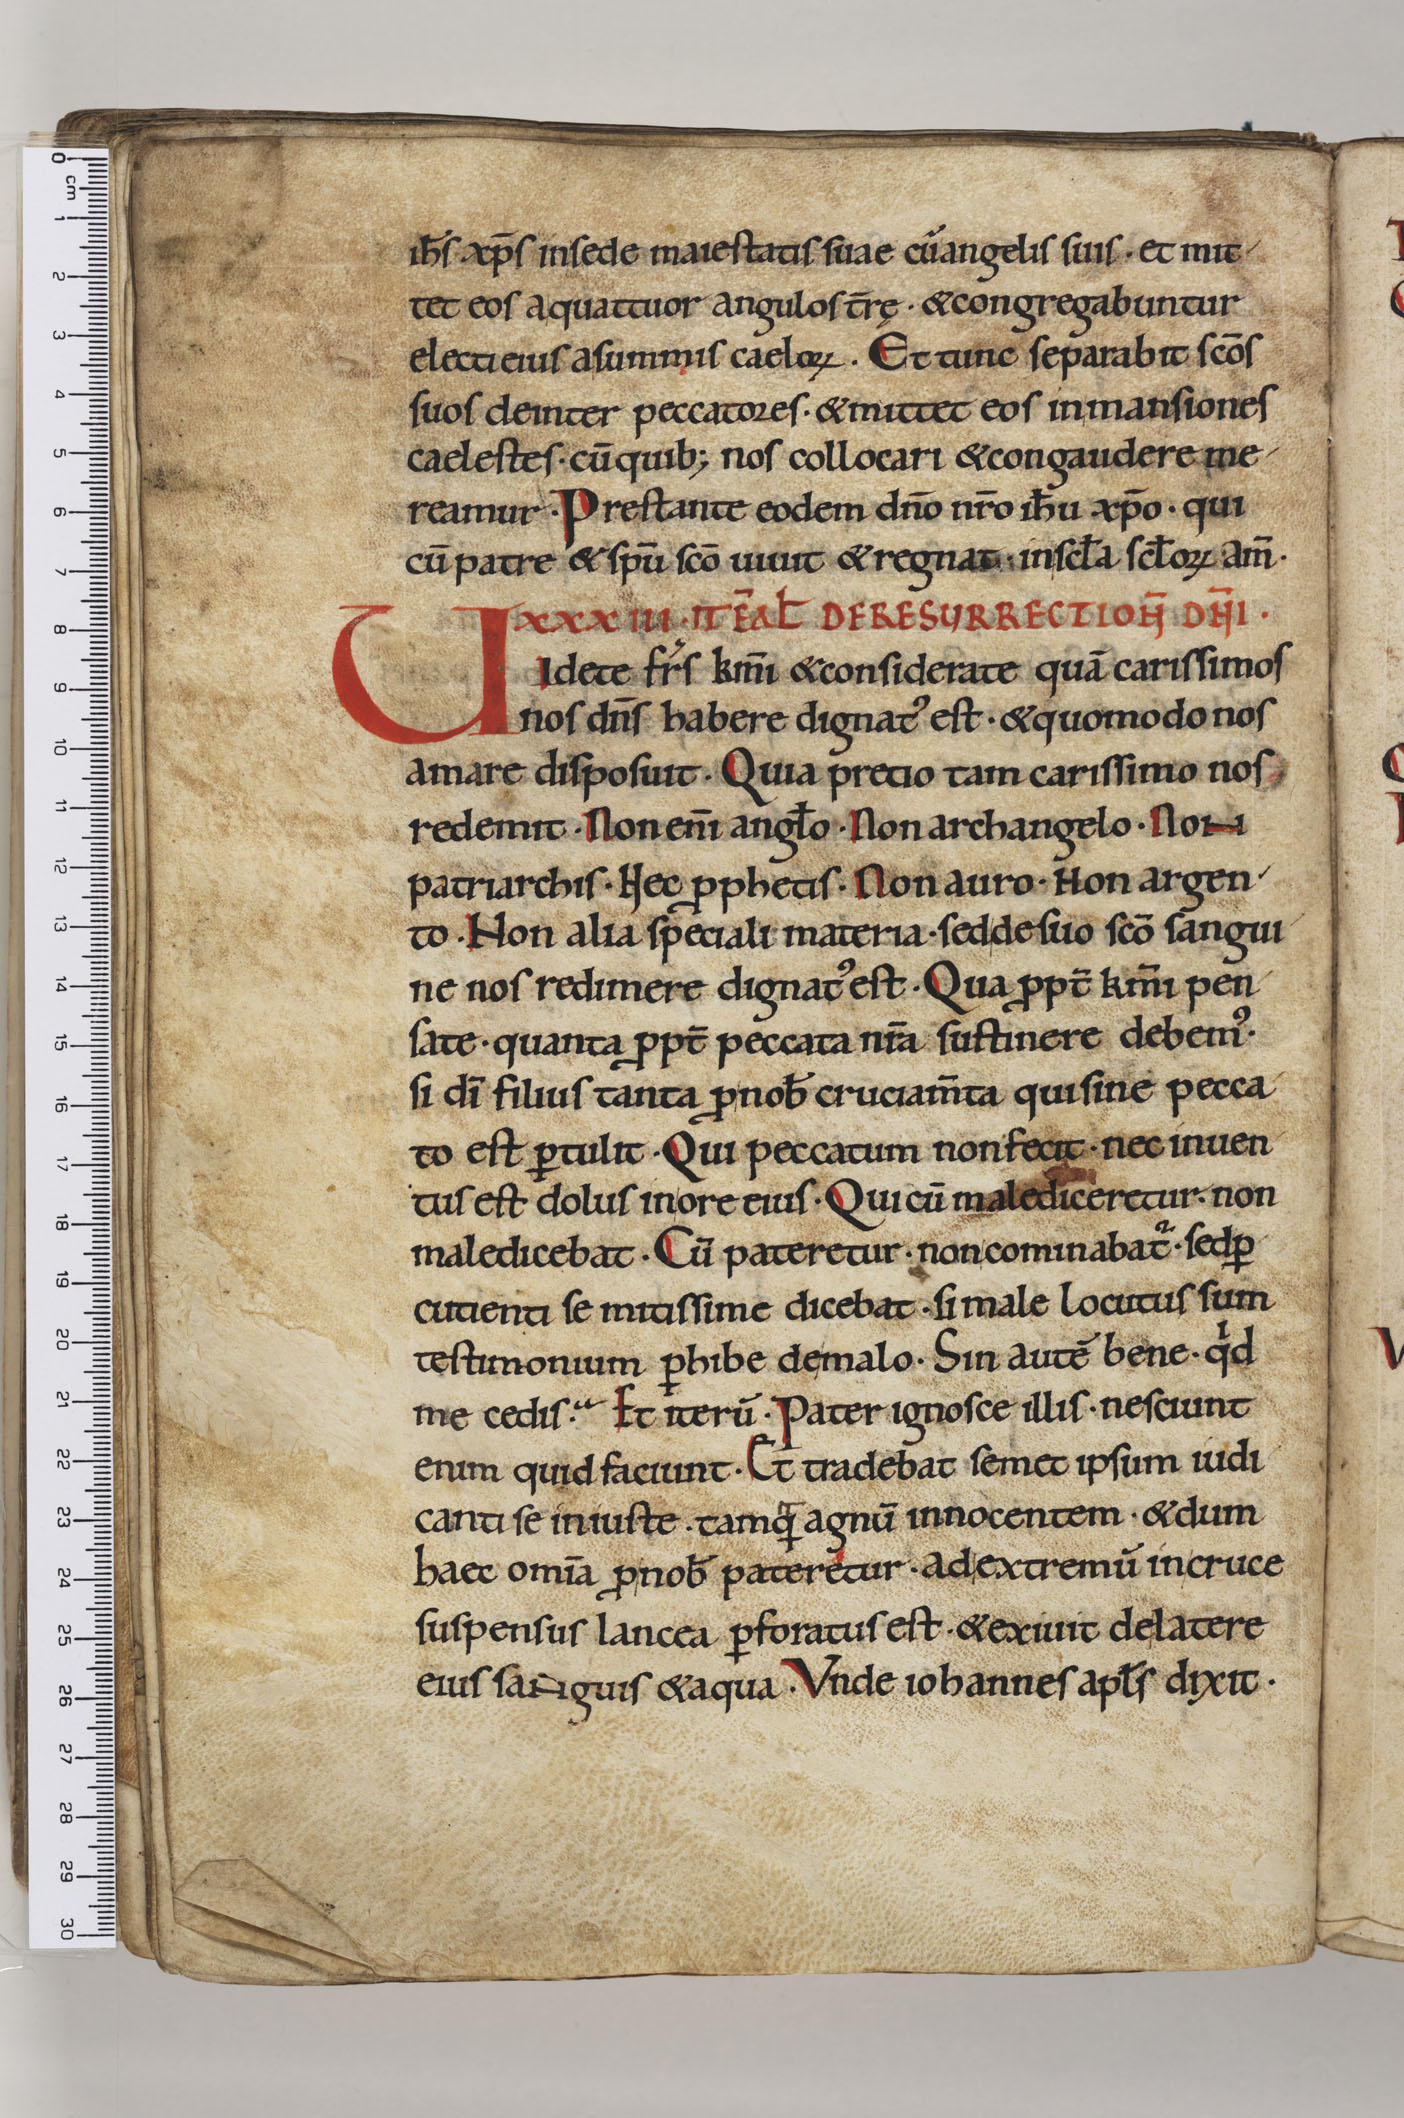 ih̄s xp̄s insede maiestatis suae cū angelis suis · et mit
tet eos aquattuor angulos t̄rę · & congregabuntur
electi eius asummis caeloꝝ . Et tunc separabit sc̄os
suos deinter peccatores · & mittet eos inmansiones
caelestes · cū quib; nos collocari & congaudere me
reamur · Prestante eodem dn̄o nr̄o ih̄u xp̄o · qui
cū patre & sp̄u sc̄o uiuit & regnat · inscl̄a scl̄oꝝ am̄ ·
XXXIII · ITĒ AL̄ DE RESURRECTIOÑ DN̄I ·
UIdete fr̄s km̄i & considerate quā carissimos
nos dn̄s habere dignatꝰ est · & quomodo nos
amare disposuit · Quia precio tam carissimo nos
redemit · Non eni̅ angl̄o · Non archangelo · Non
patriarchis · Nec ꝓphetis · Non auro · Non argen
to · Non alia speciali materia · sed de suo sc̄o sangui
ne nos redimere dignatꝰ est · Qua ꝓpt̄ km̄i pen
sate · quanta ꝓpt̄ peccata nr̄a sustinere debemꝰ ·
si dī filius tanta ꝓ nob̄ cruciam̄ta qui sine pecca
to est ꝑtulit · Qui peccatum non fecit · nec inuen
tus est dolus inore eius · Qui cū malediceretur · non
maledicebat · Cū pateretur · non cominabat᷑ · sed ꝑ
cutienti se mitissime dicebat · si male locutus sum
testimonium ꝑhibe de malo · Sin autē bene · qͥd
me cedis · Et iterū · Pater ignosce illis · nesciunt
enim quid faciunt · Et tradebat semet ipsum iudi
canti se iniuste · tamꝗ̄ agnū innocentem · & dum
haec omīa ꝓ nob̄ pateretur · ad extremū in cruce
suspensus lancea ꝑforatus est · & exiuit de latere
eius sanguis & aqua · Vnde iohannes apl̄s dixit ·
0 cm 1 2 3 4 5 6 7 8 9 10 11 12 13 14 15 16 17 18 19 20 21 22 23 24 25 26 27 28 29 30